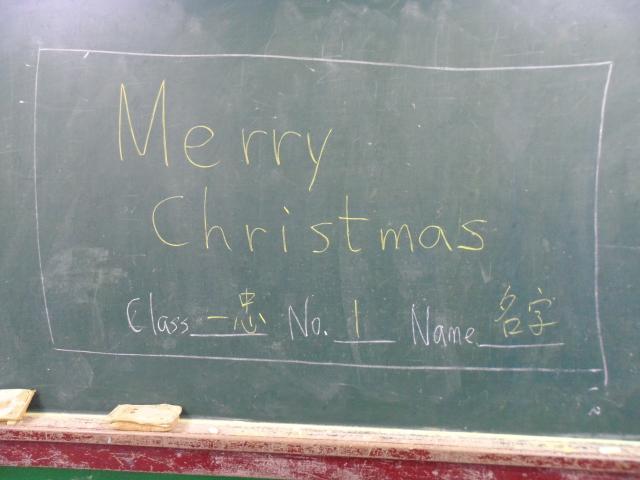 Merry
Christmas
Class 一忠 No. 1 Name 名字